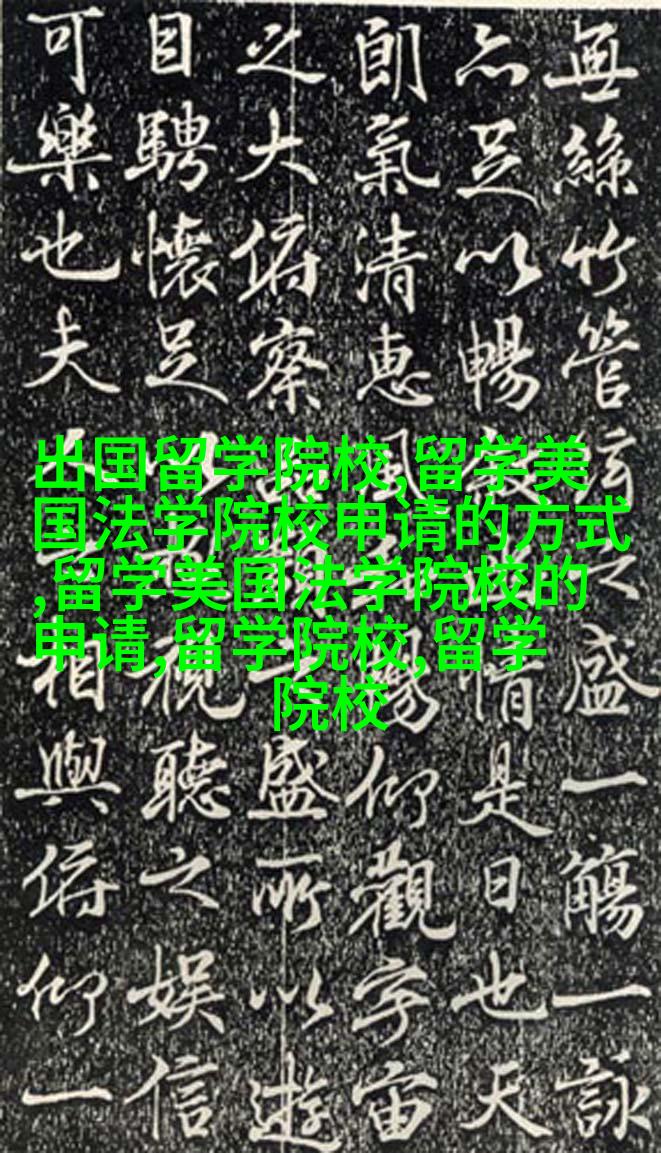 無絲竹管絃之盛一觴一詠
亦足以暢情是日也天
朗氣清惠風暢仰觀宇宙
之大俯察盛所以遊
目騁懷足視聽之娛信
可樂也夫相與俯仰一
出国留学院校,留学美
国法学院校申请的方式
,留学美国法学院校的
申请,留学院校,留学
院校